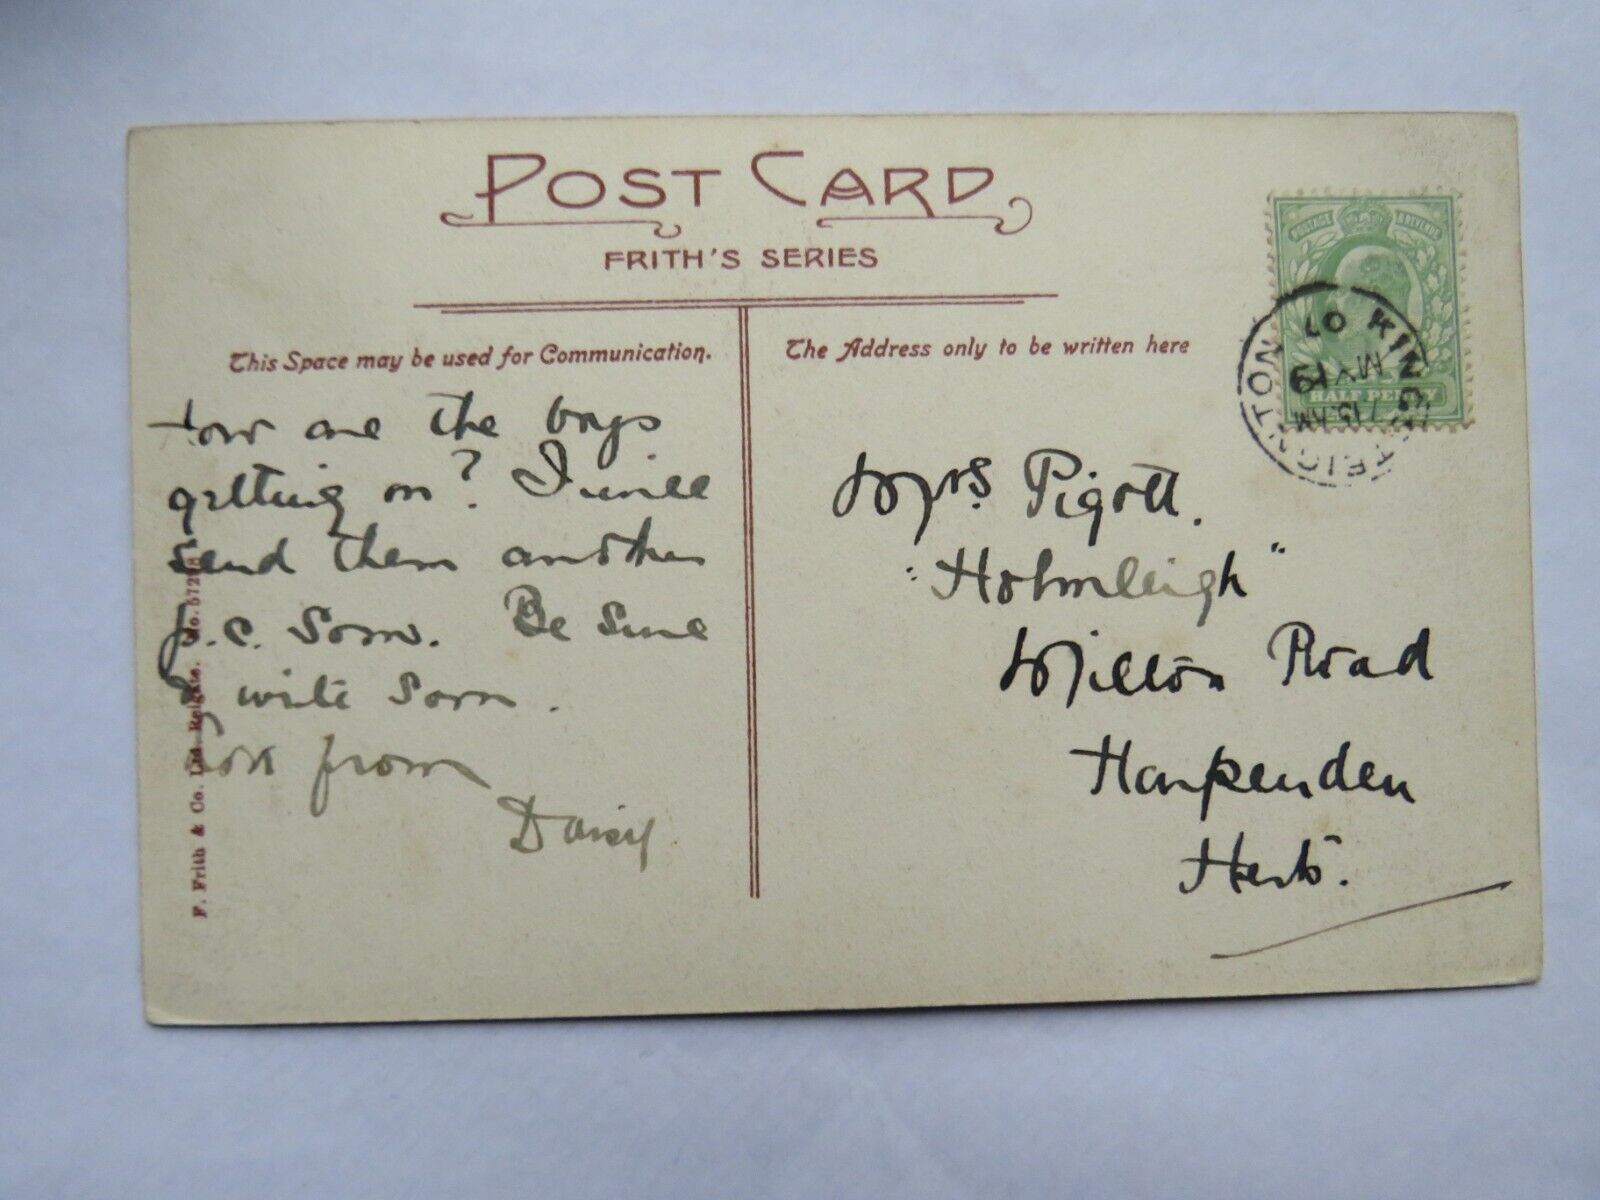 POST CARD
FRITH'S SERIES
This Space may be used for Communication.
The Address only to be written here
How are the boys
getting on? I will
send them another
p.c. soon. Be sure
& write soon.
from
Daisy
Mrs Pigott.
"Holmleigh"
Milton Road
Harpenden
Herts.
POSTAGE & REVENUE
HALF PENNY
KINGSTEIGNTON
7.15 AM
MY 19
07
F. Frith & Co. Ltd. Reigate. No.